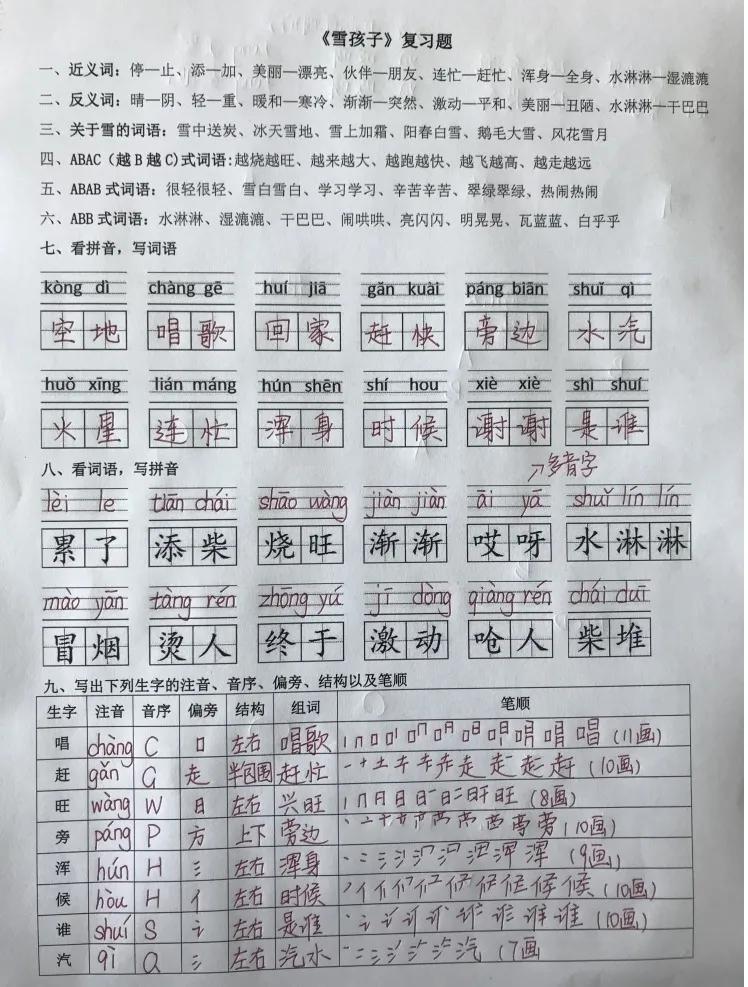 《雪孩子》复习题
一、近义词：停—止、添—加、美丽—漂亮、伙伴—朋友、连忙—赶忙、浑身—全身、水淋淋—湿漉漉
二、反义词：晴—阴、轻—重、暖和—寒冷、渐渐—突然、激动—平和、美丽—丑陋、水淋淋—干巴巴
三、关于雪的词语：雪中送炭、冰天雪地、雪上加霜、阳春白雪、鹅毛大雪、风花雪月
四、ABAC（越B越C)式词语:越烧越旺、越来越大、越跑越快、越飞越高、越走越远
五、ABAB式词语：很轻很轻、雪白雪白、学习学习、辛苦辛苦、翠绿翠绿、热闹热闹
六、ABB式词语：水淋淋、湿漉漉、干巴巴、闹哄哄、亮闪闪、明晃晃、瓦蓝蓝、白乎乎
七、看拼音，写词语
kòng dì chàng gē huí jiā gǎn kuài páng biān shuǐ qì
空地 唱歌 回家 赶快 旁边 水汽
huǒ xīng lián máng hún shēn shí hou xiè xiè shì shuí
火星 连忙 浑身 时候 谢谢 是谁
八、看词语，写拼音 多音字
lèi le tiān chái shāo wàng jiàn jiàn āi yā shuǐ lín lín
累了 添柴 烧旺 渐渐 哎呀 水淋淋
mào yān tàng rén zhōng yú jī dòng qiàng rén chái duī
冒烟 烫人 终于 激动 呛人 柴堆
九、写出下列生字的注音、音序、偏旁、结构以及笔顺
生字 注音 音序 偏旁 结构 组词 笔顺
唱 chàng C 口 左右 唱歌 (11画)
赶 gǎn G 走 半包围 赶忙 (10画)
旺 wàng W 日 左右 兴旺 (8画)
旁 páng P 方 上下 旁边 (10画)
浑 hún H 氵 左右 浑身 (9画)
候 hòu H 亻 左右 时候 (10画)
谁 shuí S 讠 左右 是谁 (10画)
汽 qì Q 氵 左右 汽水 (7画